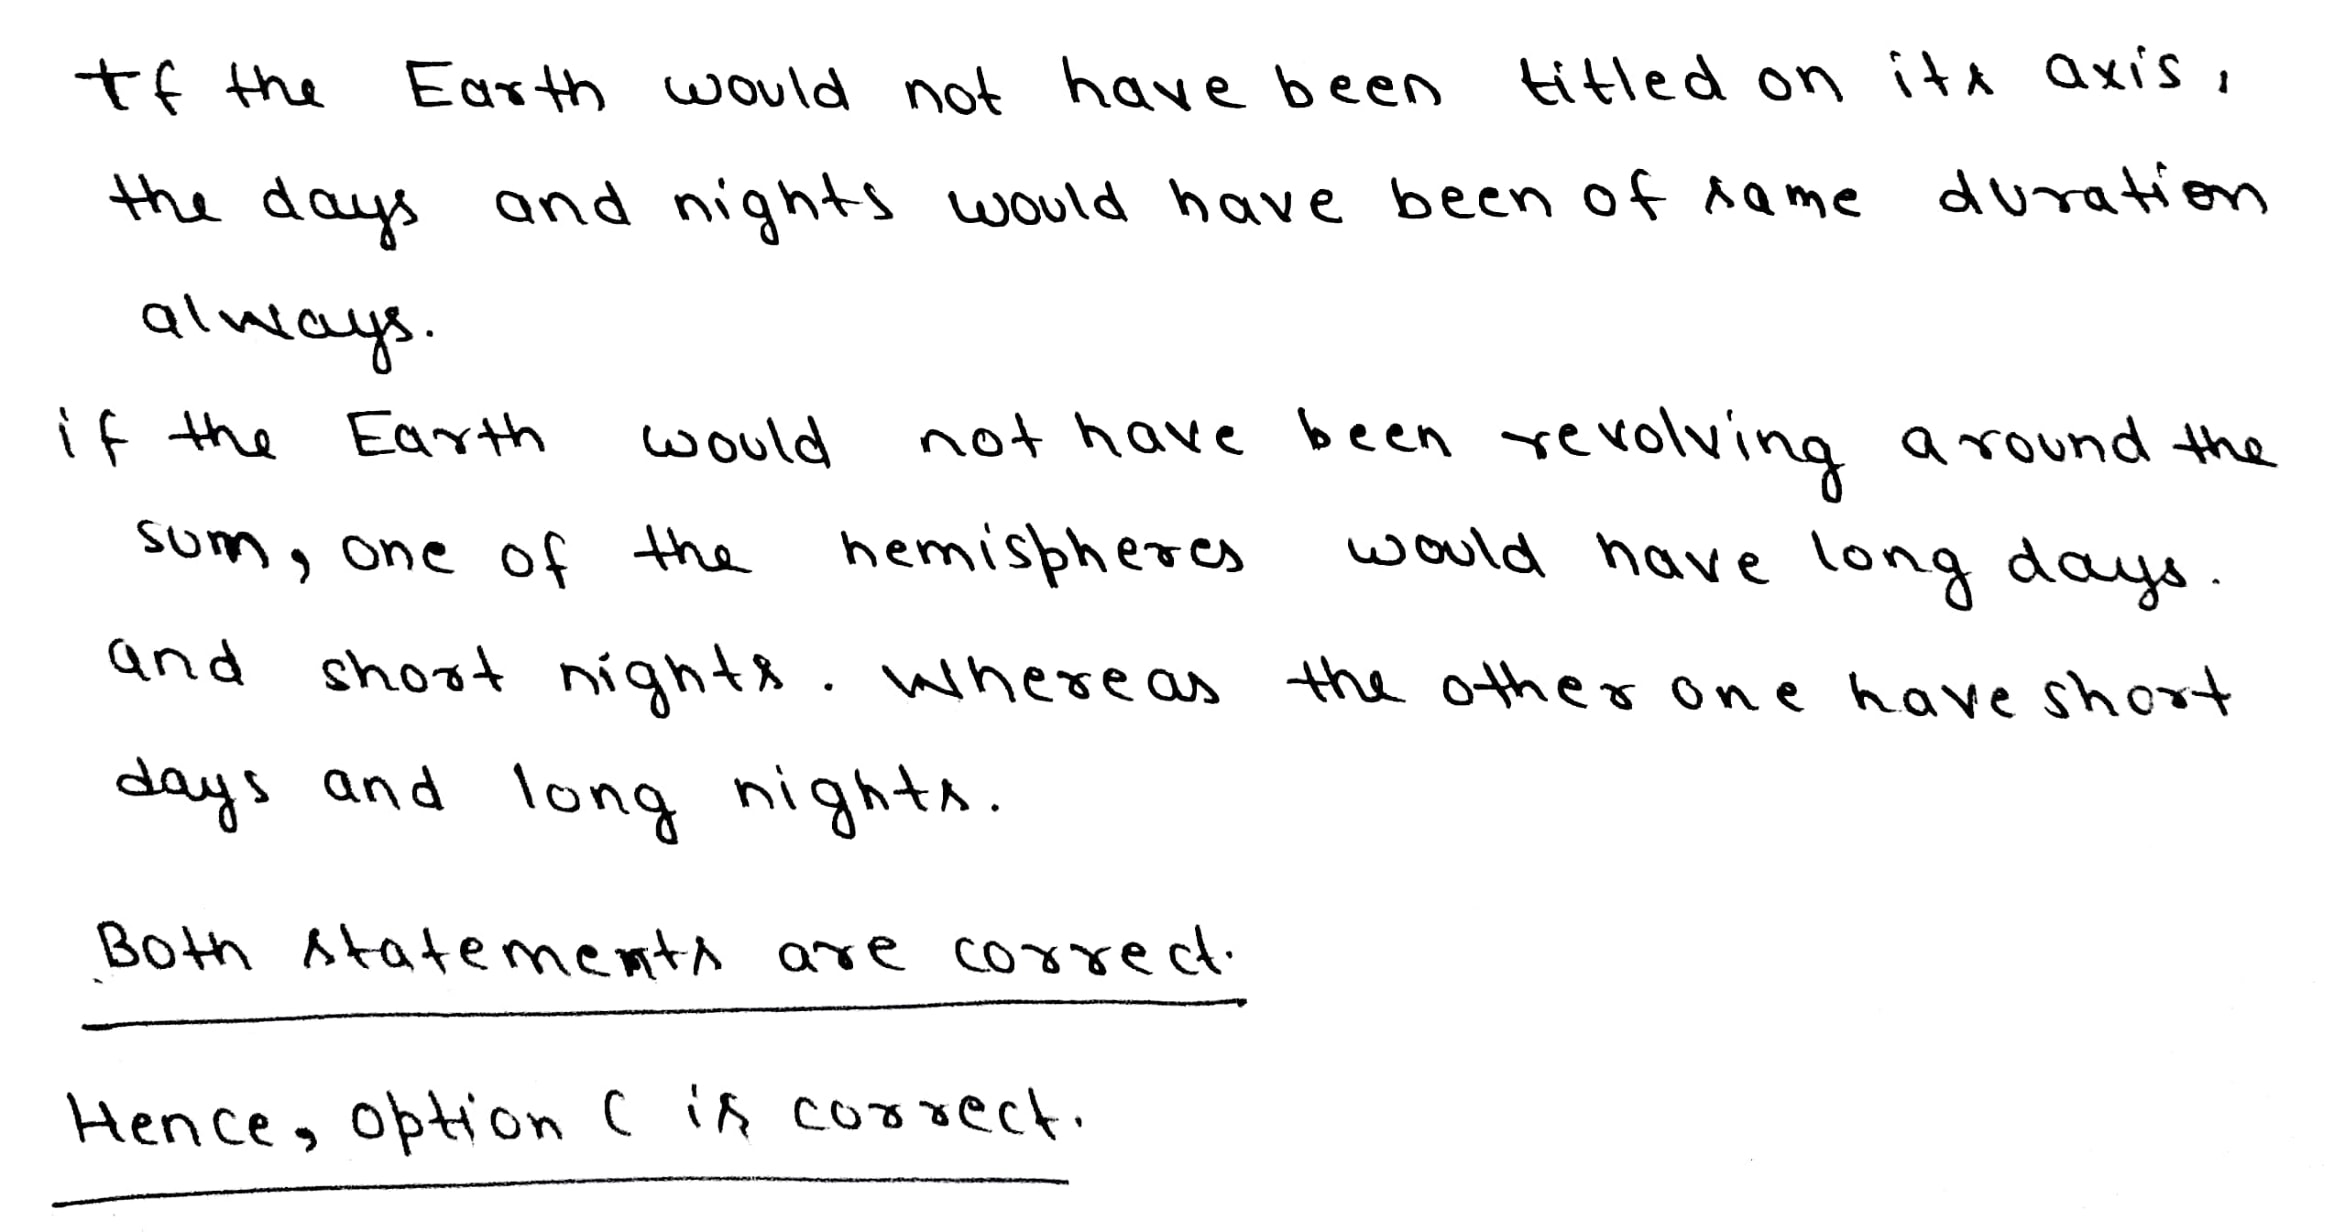 If the Earth would not have been titled on its axis,
the days and nights would have been of same duration
always.
if the Earth would not have been revolving around the
sum, one of the hemispheres would have long days.
and short nights. Whereas the other one have short
days and long nights.
Both statements are correct.
Hence, option C is correct.